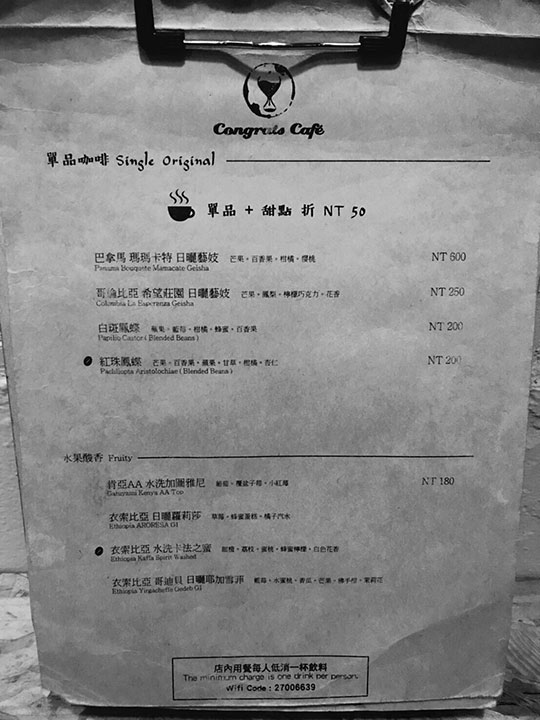 Congrats Café
單品咖啡 Single Original
單品 + 甜點 折 NT 50
巴拿馬 瑪瑪卡特 日曬藝妓 芒果。百香果。柑橘。櫻桃 NT 600
Panama Bouquete Mamacate Geisha
哥倫比亞 希望莊園 日曬藝妓 芒果。鳳梨。檸檬巧克力。花香 NT 250
Colombia La Esperanza Geisha
白斑鳳蝶 蘋果。藍莓。柑橘。蜂蜜。百香果 NT 200
Papilio Castor ( Blended Beans )
紅珠鳳蝶 芒果。百香果。蘋果。甘草。柑橘。杏仁 NT 200
Pachliopta Aristolochiae ( Blended Beans )
水果酸香 Fruity
肯亞AA 水洗加圖雅尼 覆盆子莓。小紅莓 NT 180
Gatuyaini Kenya AA Top
衣索比亞 日曬羅莉莎 草莓。蜂蜜蛋糕。橘子汽水
Ethiopia ARORESA G1
衣索比亞 水洗卡法之蜜 柑橘。荔枝。蜜桃。蜂蜜檸檬。白色花香
Ethiopia Kaffa Spirit Washed
衣索比亞 哥迪貝 日曬耶加雪菲 藍莓。水蜜桃。香瓜。芒果。佛手柑。茉莉花
Ethiopia Yirgacheffe Gedeb G1
店內用餐每人低消一杯飲料
The minimum charge is one drink per person.
Wifi Code : 27006639